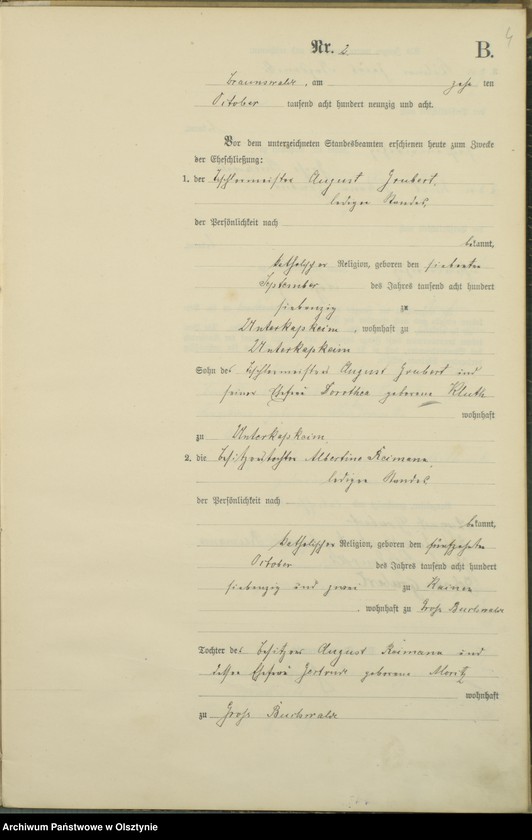 4
Nr. 2
B.
Braunswalde, am zehn ten
October tausend acht hundert neunzig und acht.
Vor dem unterzeichneten Standesbeamten erschienen heute zum Zwecke
der Eheschließung:
1. der Tischlermeister August Graubert,
ledigen Standes,
der Persönlichkeit nach
bekannt,
katholischer Religion, geboren den siebenten
September des Jahres tausend acht hundert
siebenzig zu
Unterkapkeim, wohnhaft zu
Unterkapkeim
Sohn des Tischlermeisters August Graubert und
seiner Ehefrau Dorothea geborene Kluth
wohnhaft
zu Unterkapkeim.
2. die Besitzertochter Albertine Reimann,
ledigen Standes
der Persönlichkeit nach
bekannt,
katholischer Religion, geboren den fünfzehnten
October des Jahres tausend acht hundert
siebenzig und zwei zu Kainen
, wohnhaft zu Groß Buchwalde
Tochter des Besitzers August Reimann und
dessen Ehefrau Gertrude geborene Moritz
wohnhaft
zu Groß Buchwalde
Archiwum Państwowe w Olsztynie